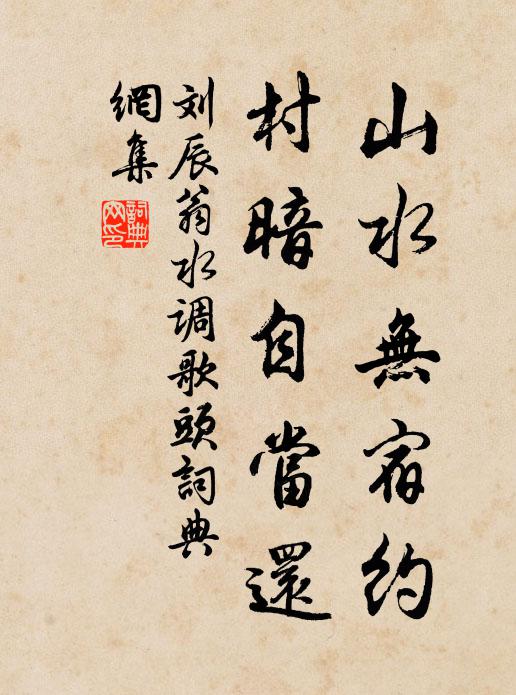 山水無宿約
村暗自當還
刘辰翁水调歌頭詞典
網集
詞典
网印